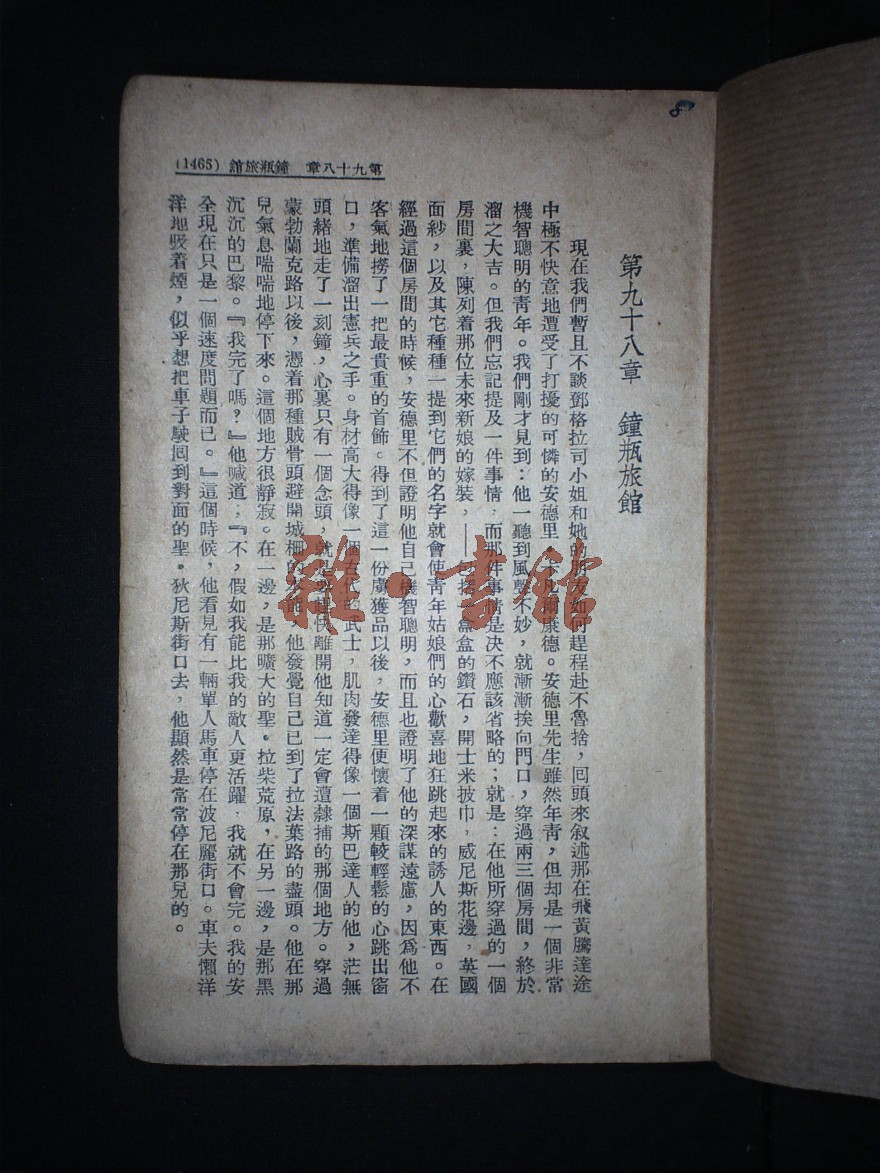 8
第九十八章　鐘瓶旅館　(1465)
第九十八章　鐘瓶旅館
現在我們暫且不談鄧格拉司小姐和她的朋友如何趕程赴不魯捨，回頭來叙述那在飛黃騰達途
中極不快意地遭受了打擾的可憐的安德里・卡凡爾康德。安德里先生雖然年青，但却是一個非常
機智聰明的青年。我們剛才見到：他一聽到風聲不妙，就漸漸挨向門口，穿過兩三個房間，終於
溜之大吉。但我們忘記提及一件事情，而那件事情是决不應該省略的；就是：在他所穿過的一個
房間裏，陳列着那位未來新娘的嫁裝，——包括一盒盒的鑽石，開士米披巾，威尼斯花邊，英國
面紗，以及其它種種一提到它們的名字就會使青年姑娘們的心歡喜地狂跳起來的誘人的東西。在
經過這個房間的時候，安德里不但證明他自己機智聰明，而且也證明了他的深謀遠慮，因爲他不
客氣地撈了一把最貴重的首飾。得到了這一份虜獲品以後，安德里便懷着一顆較輕鬆的心跳出窗
口，準備溜出憲兵之手。身材高大得像一個古代的武士，肌肉發達得像一個斯巴達人的他，茫無
頭緒地走了一刻鐘，心裏只有一個念頭，就是要趕快離開他知道一定會遭隸捕的那個地方。穿過
蒙勃蘭克路以後，憑着那種賊骨頭避開城柵的本能，他發覺自己已到了拉法葉路的盡頭。他在那
兒氣息喘喘地停下來。這個地方很靜寂。在一邊，是那曠大的聖・拉柴荒原，在另一邊，是那黑
沉沉的巴黎。『我完了嗎？』他喊道；『不，假如我能比我的敵人更活躍，我就不會完。我的安
全現在只是一個速度問題而已。』這個時候，他看見有一輛單人馬車停在波尼麗街口。車夫懶洋
洋地吸着煙，似乎想把車子駛囘到對面的聖・狄尼斯街口去，他顯然是常常停在那兒的。
雜・書館